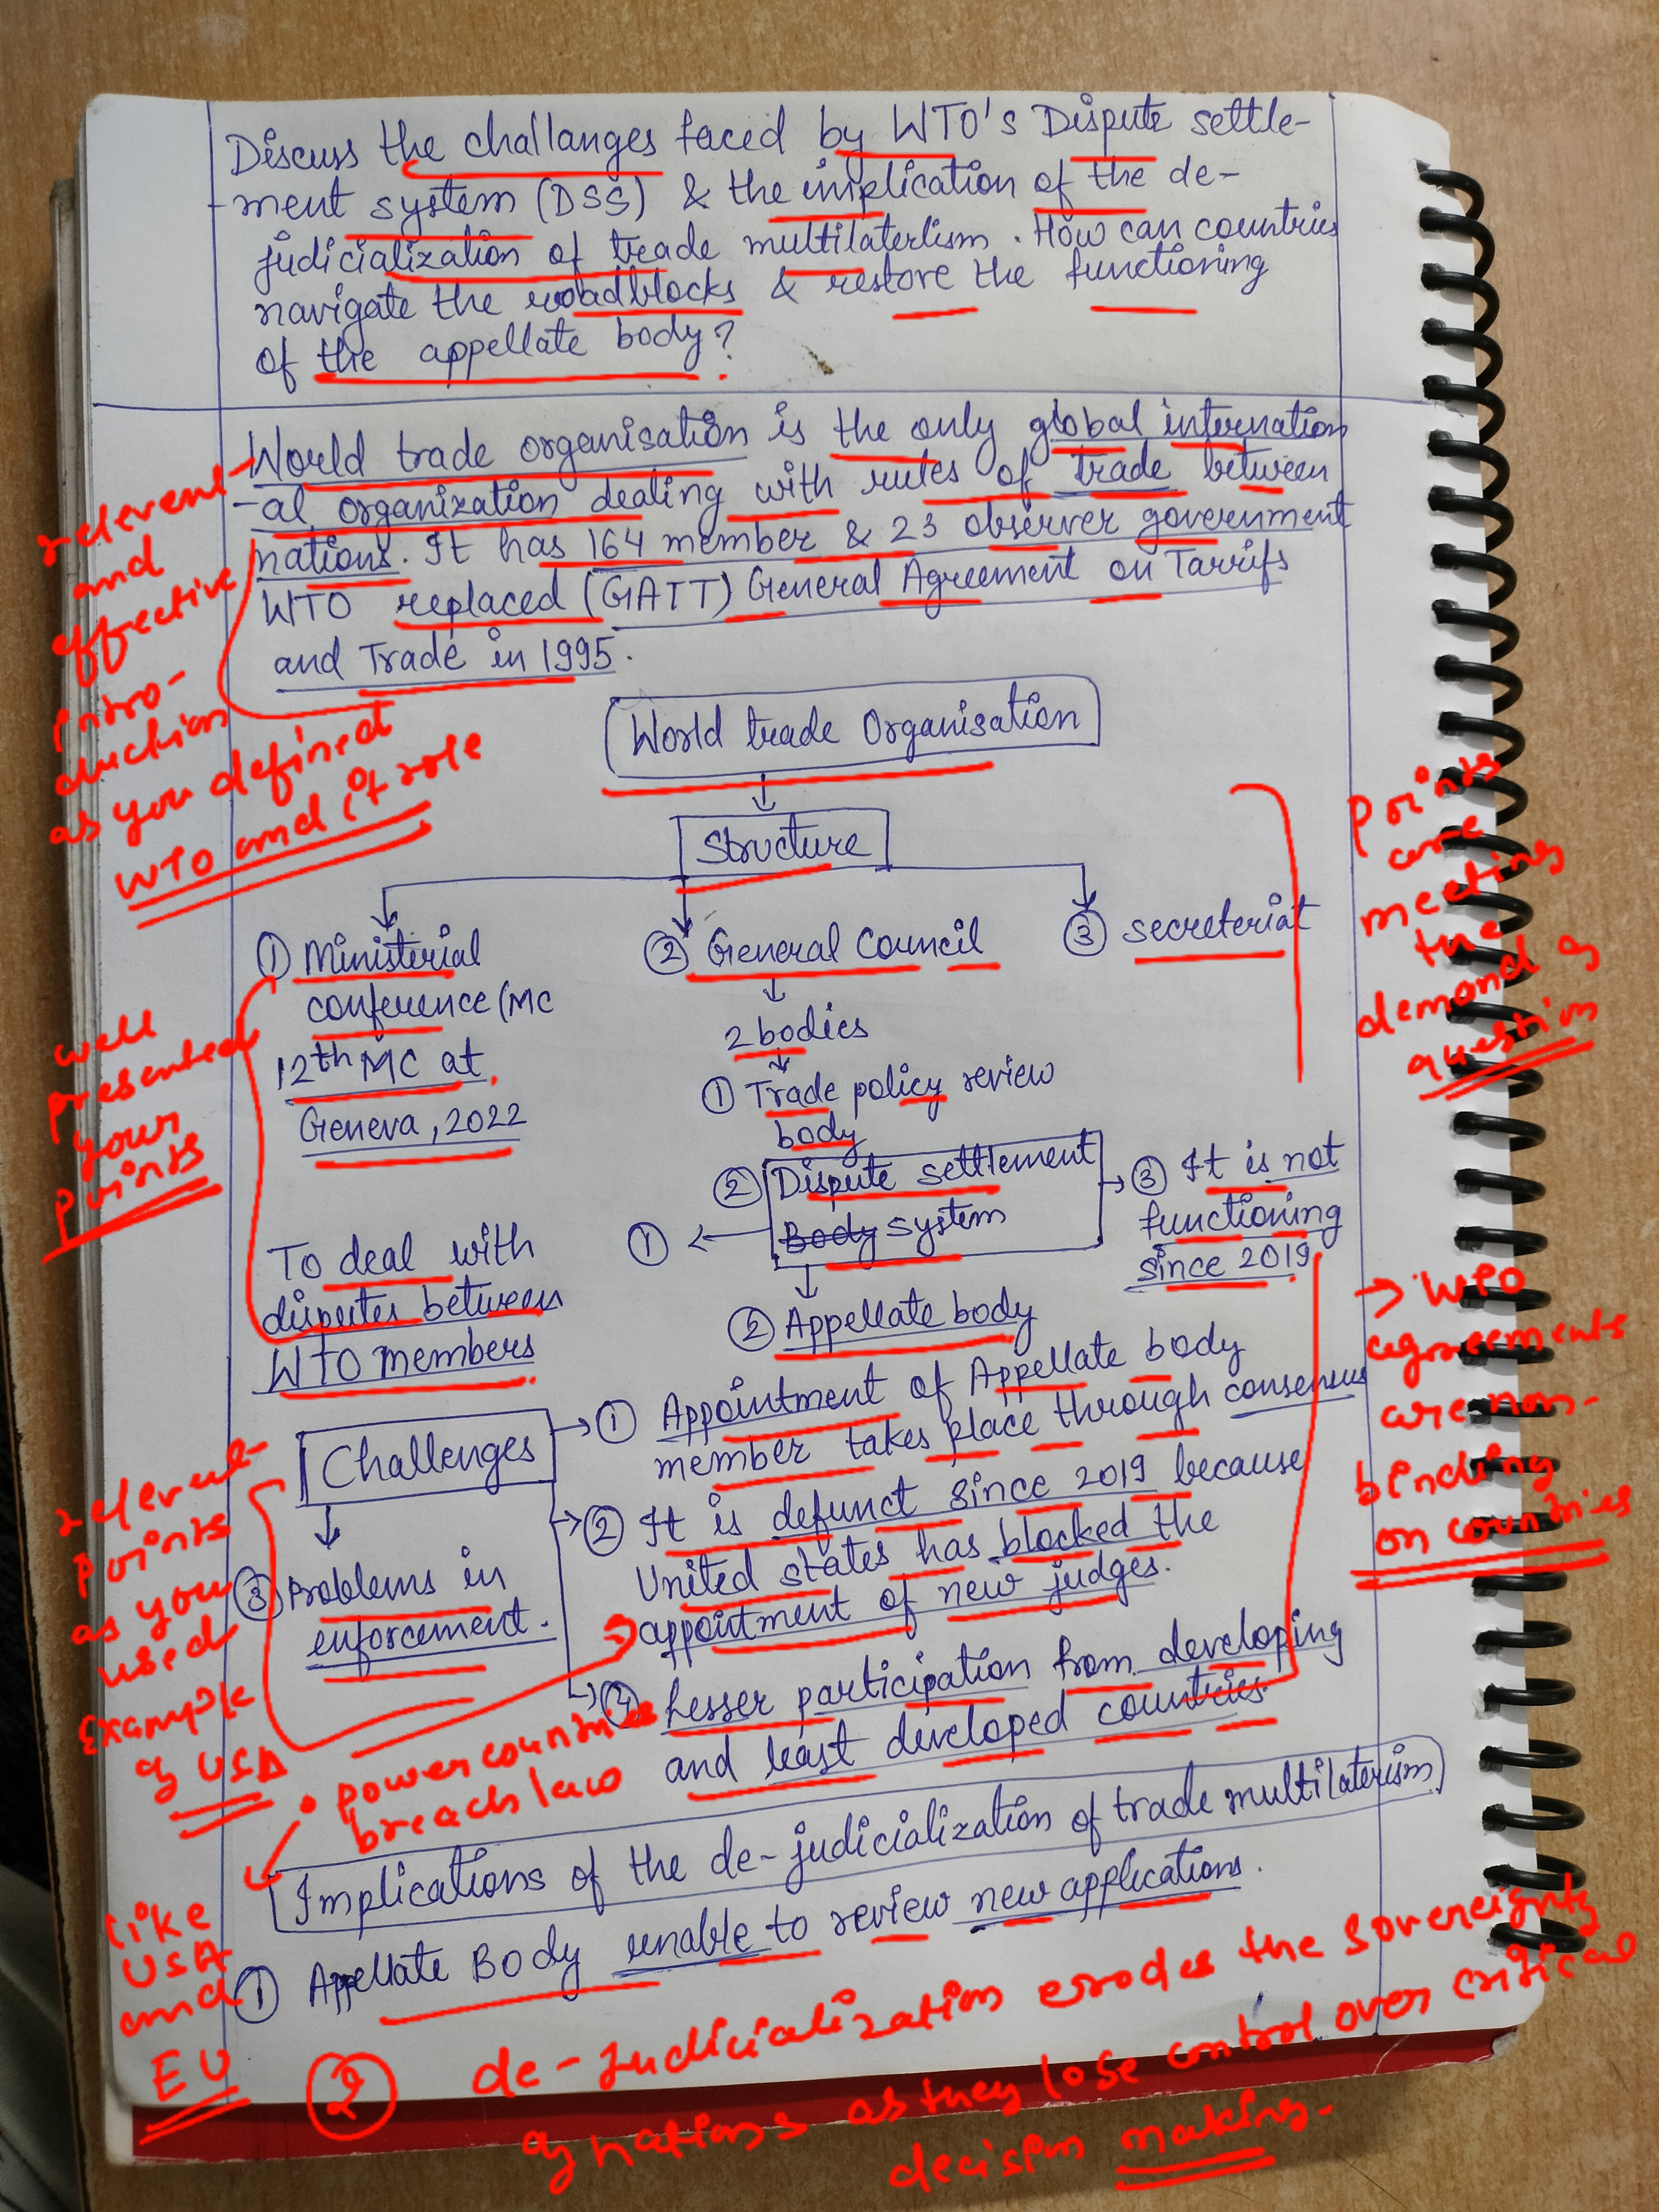 Discuss the challanges faced by WTO's Dispute settle-
-ment system (DSS) & the implication of the de-
judicialization of trade multilaterlism. How can countries
navigate the roadblocks & restore the functioning
of the appellate body?
World trade organisation is the only global internation
-al organization dealing with rules of trade between
nations. It has 164 member & 23 observer government
WTO replaced (GATT) General Agreement on Tarrifs
and Trade in 1995.
relevent
and
effective
intro-
duction
as you defined
WTO and it role
World trade Organisation
Structure
① Ministerial
conference (MC
12th MC at
Geneva, 2022
② General Council
2 bodies
① Trade policy review
body
② Dispute settlement
Body system
③ secreteriat
Points
are
meeting
the
demand of
question
well
presented
your
Points
①
To deal with
disputes between
WTO members
② Appellate body
③ It is not
functioning
since 2019
→ WTO
agreements
are non-
binding
on countries
Challenges
① Appointment of Appellate body
member takes place through consensus
② It is defunct since 2019 because
United states has blocked the
appointment of new judges.
③ Problems in
enforcement.
④ Lesser participation from developing
and least developed countries.
relevent
points
as you
used
Example
of USA
• power countries
breach law
like
USA
and
EU
Implications of the de-judicialization of trade multilaterism
① Appellate Body unable to review new applications.
② de-judicialization errodes the sovereignty
of nations as they lose control over critical
decision making.